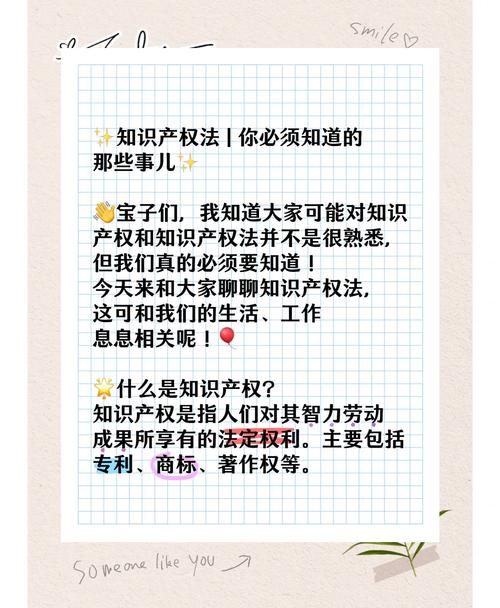 smile
✨知识产权法 | 你必须知道的
那些事儿✨
👋宝子们，我知道大家可能对知识
产权和知识产权法并不是很熟悉，
但我们真的必须要知道！
今天来和大家聊聊知识产权法，
这可和我们的生活、工作
息息相关呢！🎈
🌟什么是知识产权？
知识产权是指人们对其智力劳动
成果所享有的法定权利。主要包括
专利、商标、著作权等。
SOmeone like YOU